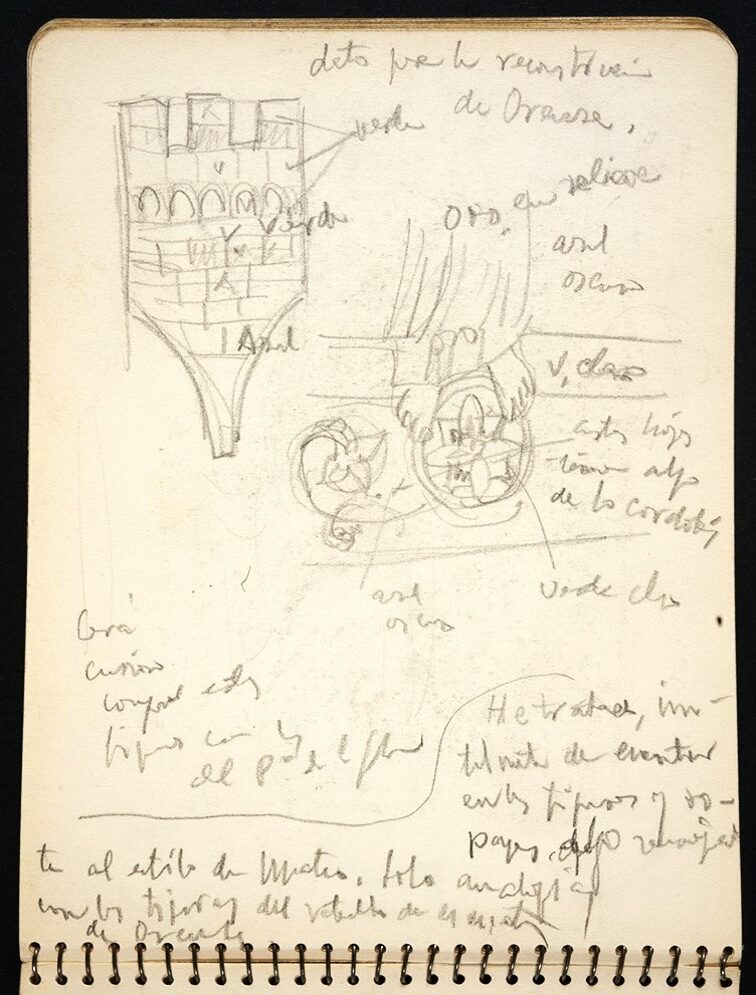 dato para la reconstrucción
de Orense,
verde
oro, en relieve
V verde
azul
oscuro
Azul
V, claro
estas hojas
tienen algo
de lo cordobés
azul
oscuro
verde claro
Será
curioso
comparar estas
figuras con las
del P
He tratado, in-
útilmente de encontrar
en las figuras y ro-
pajes, algo semejan-
te al estilo de Mateo, solo analogías
con las figuras del retablo de
de Orense